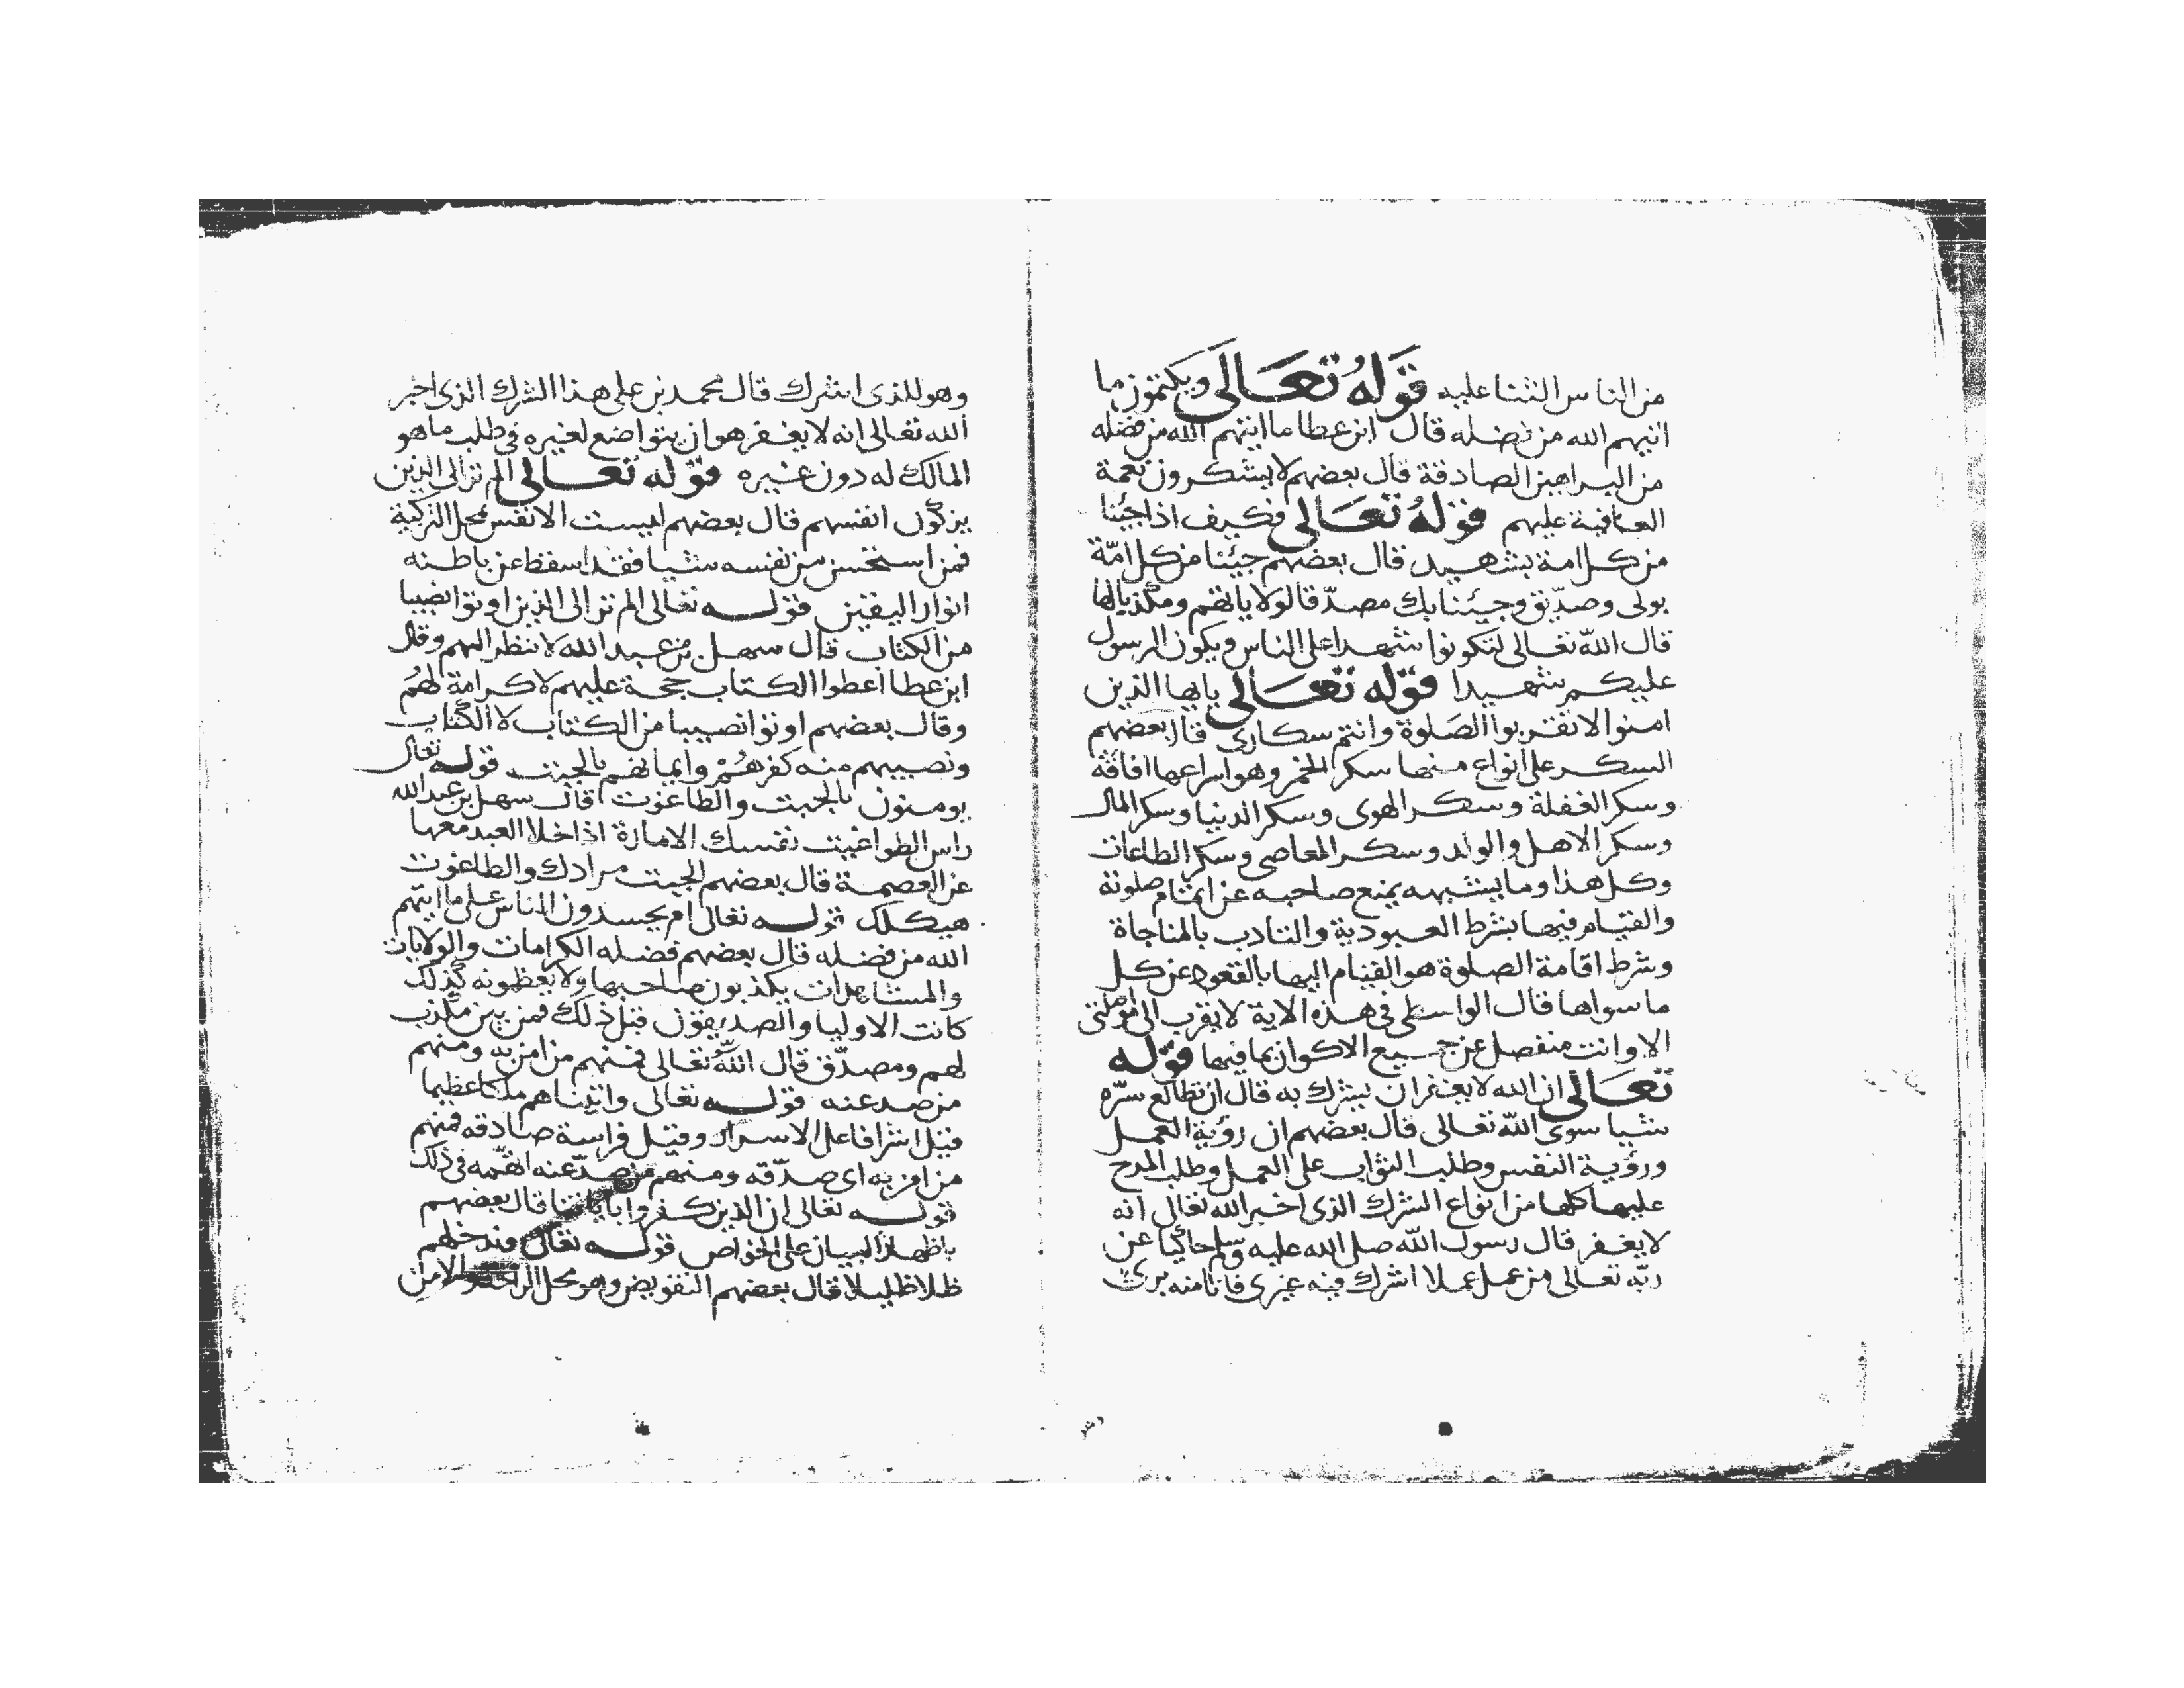 من الناس الثنا عليه قَولهُ تعَالَى ويكتمون ما
اتيهم الله من فضله قال ابن عطا ما اتيهم الله من فضله
من البراهين الصادقة قال بعضهم لا يشكرون نعمة
العافية عليهم قولهُ تعَالى فكيف اذا جئنا
من كل امة بشهيد قال بعضهم جئنا من كل امّة
بولى وصدّيق وجئنا بك مصدّقا لولايانهم ومكذبا لها
قال الله تعالى لتكونوا شهدا على الناس ويكون الرسول
عليكم شهيدا قوله تعَالى يايها الذين
امنوا لا تقربوا الصلوة وانتم سكارى قال بعضهم
السكر على انواع منها سكر الخمر وهو اسراعها افاقة
وسكر الغفلة وسكر الهوى وسكر الدنيا وسكر المال
وسكر الاهل والولد وسكر المعاصى وسكر الطاعات
وكل هذا وما يشبهه يمنع صاحبه عن اتمام صلوته
والقيام فيها بشرط العبودية والتادب بالمناجاة
وشرط اقامة الصلوة هو القيام اليها بالقعود عن كل
ما سواها قال الواسطى فى هذه الاية لا يقرب الى مواصلتى
الا وانت منفصل عن جميع الاكوان بما فيها قوله
تعَالَى ان الله لا يغفر ان يشرك به قال ان تطالع سرّه
شيا سوى الله تعالى قال بعضهم ان رؤية العمل
ورؤية النفس وطلب الثواب على العمل وطلب المدح
عليها كلها من انواع الشرك الذى اخبر الله تعالى انه
لا يغفر قال رسول الله صلى الله عليه وسلم حاكيا عن
ربّه تعالى من عمل عملا اشرك فيه غيرى فانا منه برئ
وهو للذى اشرك قال محمد بن على هذا الشرك الذى اخبر
الله تعالى انه لا يغفر هو ان يتواضع لغيره فى طلب ما هو
المالك له دون غيره قوله تعالى الم تر الى الذين
يزكون انفسهم قال بعضهم ليست الانفس محل التزكية
فمن استحسن من نفسه شيا فقد اسقط عن باطنه
انوار اليقين قوله تعالى الم تر الى الذين اوتوا نصيبا
من الكتاب قال سهل بن عبد الله لا تنظر اليهم وقال
ابن عطا اعطوا الكتاب حجة عليهم لا كرامة لهم
وقال بعضهم اوتوا نصيبا من الكتاب لا الكتاب
ونصيبهم منه كفرهُمْ وايمانهم بالجبت قوله تعالى
يومنون بالجبت والطاغوت قال سهل بن عبد الله
راس الطواغيت نفسك الامارة اذا خلا العبد معها
عن العصمة قال بعضهم الجبت مرادك والطاغوت
هيكلك قوله تعالى ام يحسدون الناس على ما اتيهم
الله من فضله قال بعضهم فضله الكرامات والولايات
والمشاهدات يكذبون صاحبها ولا يعظمونه كذلك
كانت الاوليا والصديقون قبل ذلك فمن بين مكذب
لهم ومصدّق قال الله تعالى فمنهم من امن به ومنهم
من صد عنه قوله تعالى واتيناهم ملكا عظيما
قيل اشرافا على الاسرار وقيل فراسة صادقه فمنهم
من امن به اى صدّقه ومنهم من صدّ عنه اتهمه فى ذلك
قوله تعالى ان الذين كفروا باياتنا قال بعضهم
باظهار البيان على الخواص قوله تعالى وندخلهم
ظلا ظليلا قال بعضهم التفويض وهو محل الراحة والامن